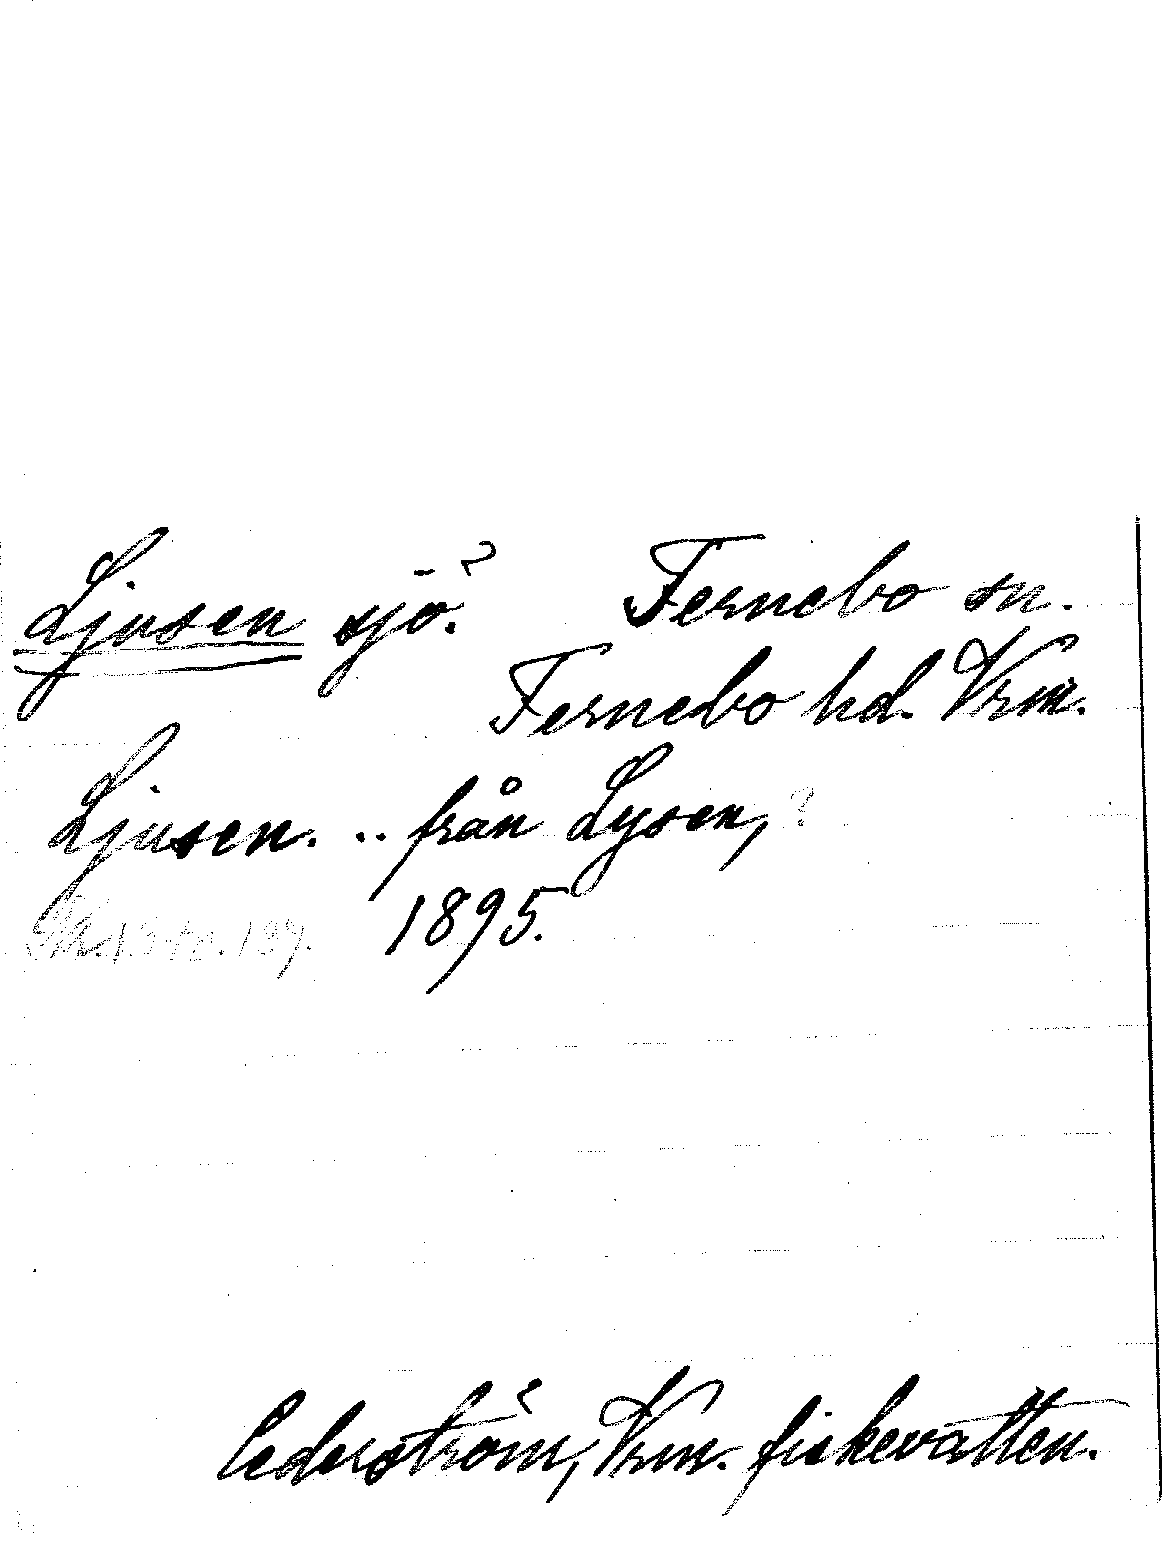 Ljusen sjö? Fernebo sn.
Fernebo hd. Vrm.
Ljusen. .. från Lysen, ?
1895.
Cederström, Vrm. fiskevatten.